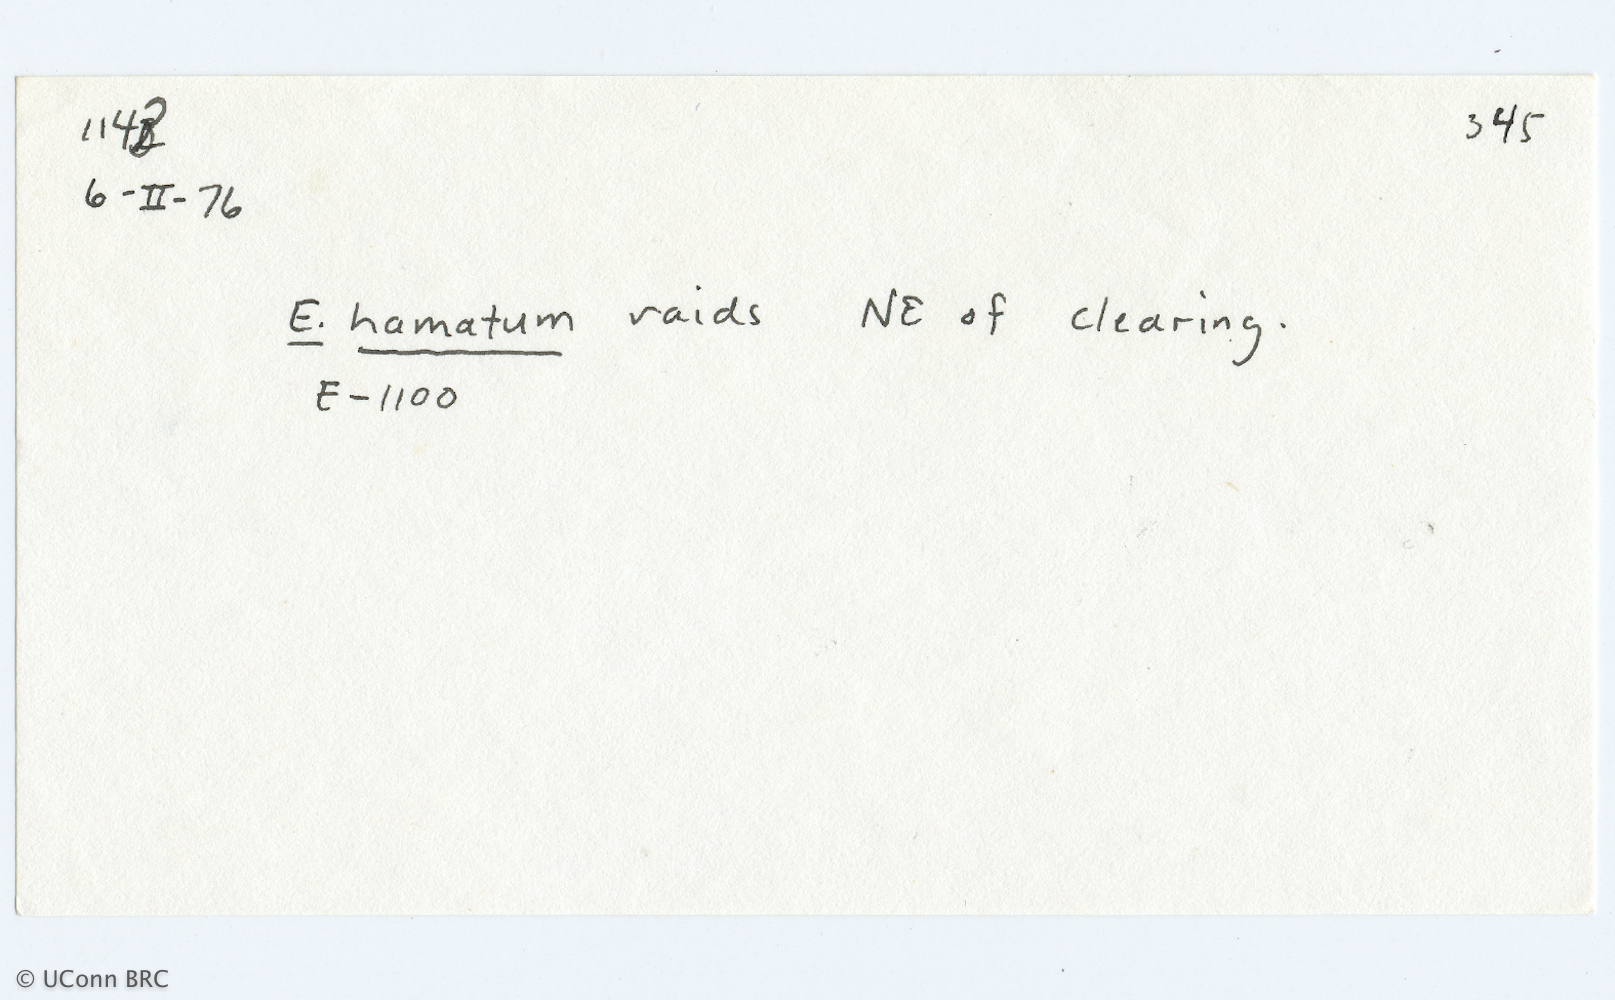 345
6-II-76
E. hamatum raids NE of clearing.
E-1100
© UConn BRC